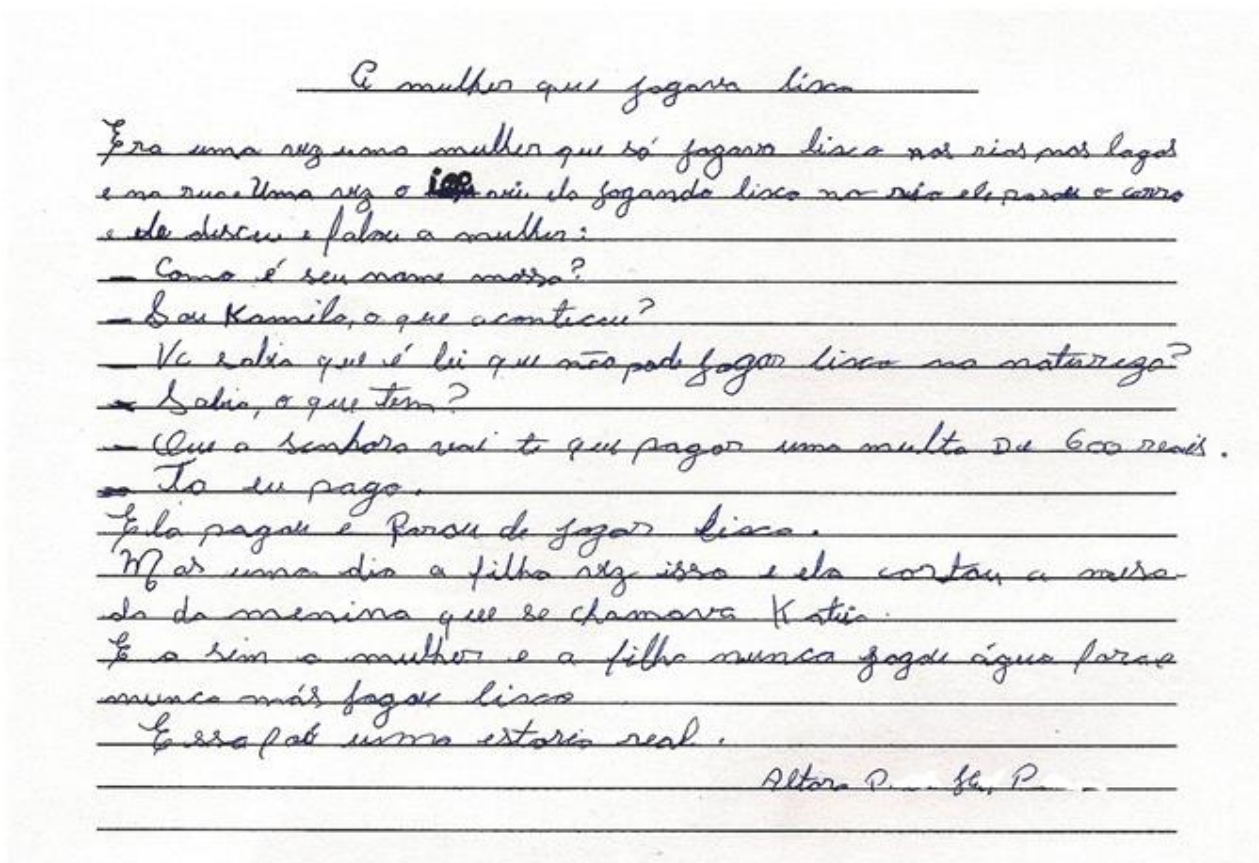 A mulher que jogava lixo
Era uma vez uma mulher que só jogava lixo nos rios, nos lagos
e na rua. Uma vez o viu ela jogando lixo no rio ele parou o carro
e ele desceu e falou a mulher:
– Como é seu nome mossa?
– Sou Kamila, o que aconteceu?
– Vc sabia que é lei que não pode jogar lixo na natureza?
– Sabia, o que tem?
– Que a senhora vai te que pagar uma multa De 600 reais.
– Ta eu pago.
Ela pagou e Parou de jogar lixo.
Mas uma dia a filha vez isso e ela cortou a mesa-
da da menina que se chamava Katia.
E a sim a mulher e a filha nunca jogou água
nunca más jogou lixo
Essa uma estoria real.